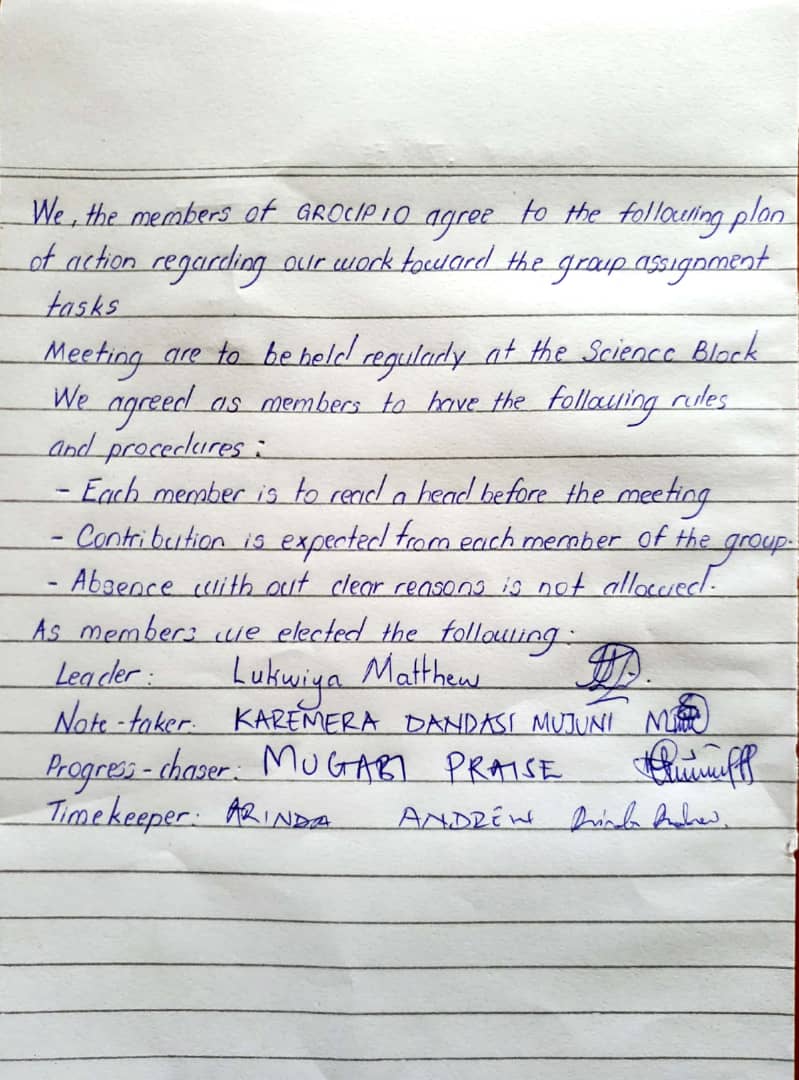 We, the members of GROUP 10 agree to the following plan
of action regarding our work toward the group assignment
tasks
Meeting are to be held regularly at the Science Block
We agreed as members to have the following rules
and procedures :
- Each member is to read a head before the meeting
- Contribution is expected from each member of the group.
- Absence with out clear reasons is not allowed.
As members we elected the following :
Leader : Lukwiya Matthew
Note-taker. KAREMERA DANDASI MUJUNI
Progress-chaser: MUGABI PRAISE
Timekeeper: ARINDA ANDREW Arinda Andrew.